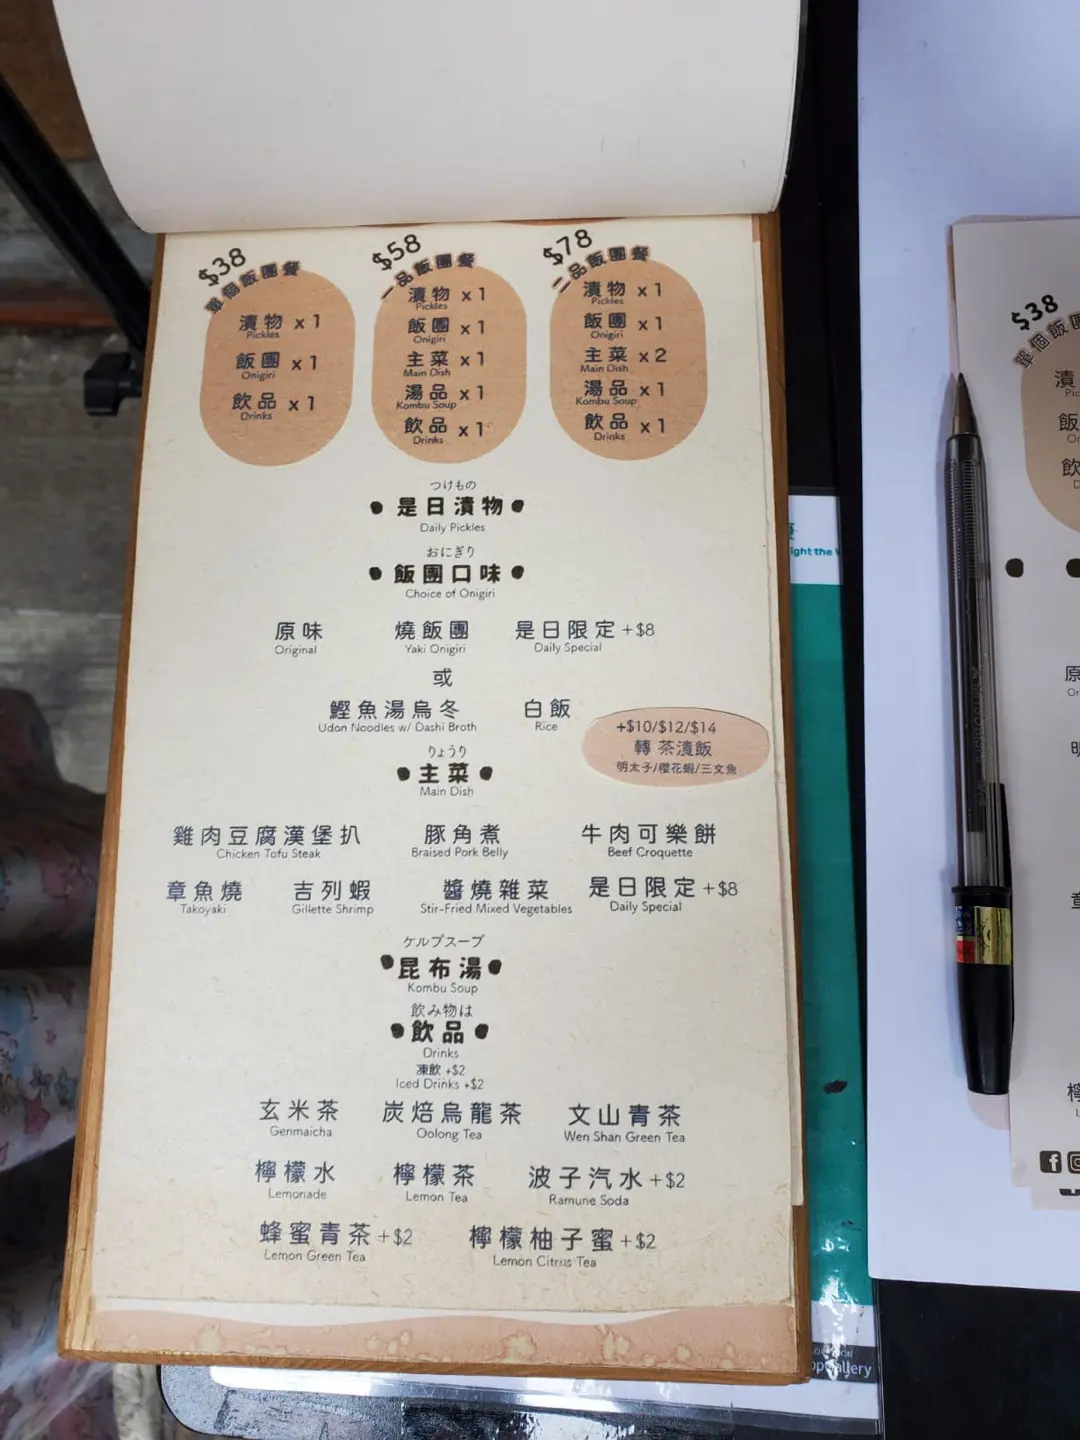 $38
單個飯團餐
漬物 x 1
Pickles
飯團 x 1
Onigiri
飲品 x 1
Drinks
$58
一品飯團餐
漬物 x 1
Pickles
飯團 x 1
Onigiri
主菜 x 1
Main Dish
湯品 x 1
Kombu Soup
飲品 x 1
Drinks
$78
二品飯團餐
漬物 x 1
Pickles
飯團 x 1
Onigiri
主菜 x 2
Main Dish
湯品 x 1
Kombu Soup
飲品 x 1
Drinks
つけもの
是日漬物
Daily Pickles
おにぎり
飯團口味
Choice of Onigiri
原味 燒飯團 是日限定 +$8
Original Yaki Onigiri Daily Special
或
鰹魚湯烏冬 白飯
Udon Noodles w/ Dashi Broth Rice
+$10/$12/$14
轉 茶漬飯
明太子/櫻花蝦/三文魚
りょうり
主菜
Main Dish
雞肉豆腐漢堡扒 豚角煮 牛肉可樂餅
Chicken Tofu Steak Braised Pork Belly Beef Croquette
章魚燒 吉列蝦 醬燒雜菜 是日限定 +$8
Takoyaki Gillette Shrimp Stir-Fried Mixed Vegetables Daily Special
ケルプスープ
昆布湯
Kombu Soup
飲み物は
飲品
Drinks
凍飲 +$2
Iced Drinks +$2
玄米茶 炭焙烏龍茶 文山青茶
Genmaicha Oolong Tea Wen Shan Green Tea
檸檬水 檸檬茶 波子汽水 +$2
Lemonade Lemon Tea Ramune Soda
蜂蜜青茶 +$2 檸檬柚子蜜 +$2
Lemon Green Tea Lemon Citrus Tea
ight the
$38
單個飯團
漬
飯
飲
原
檸